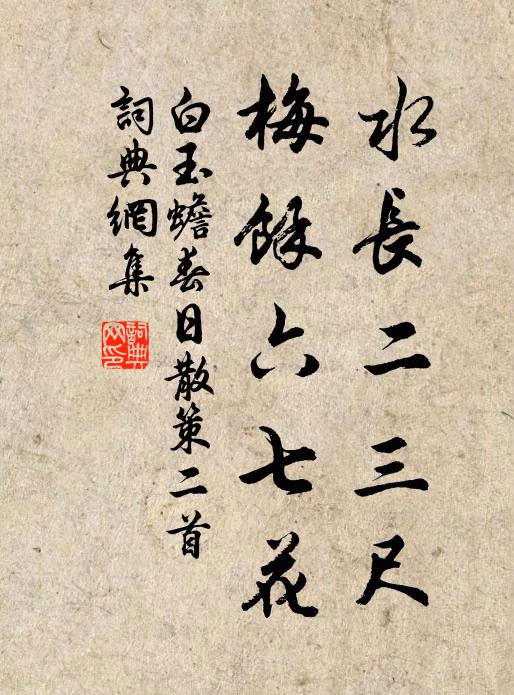 水長二三尺
梅餘六七花
白玉蟾春日散策二首
詞典網集
詞典網印